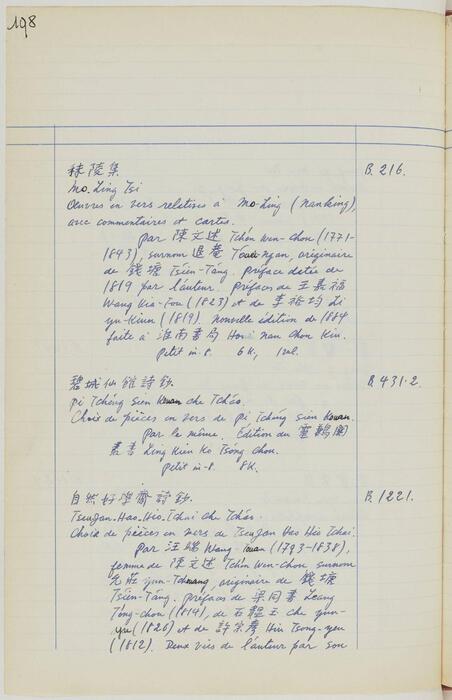 198
秣陵集 B. 216.
Mo-Ling Tsi
Œuvres en vers relatives à Mo-Ling (Nanking),
avec commentaires et cartes.
par 陳文述 Tchén Wen-Chou (1771-
1843), surnom 退菴 -ngan, originaire
de 錢塘 Tsién-Táng. Préface datée de
1819 par l'auteur. Préfaces de 王嘉福
Wang Kia-Fou (1823) et de 李裕均 Li
yu-Kiun (1819). Nouvelle édition de 1884
faite à 淮南書局 Hoai nan Chou Kiu.
Petit in-8. 6 K., 1 vol.
碧城仙館詩鈔 B. 431-2.
Pi Tchéng Sien Kouan che Tcháo.
Choix de pièces en vers de Pi Tchéng Sien Kouan.
Par le même. Édition du 靈鶼閣
叢書 Ling Kien Ko Tsóng Chou.
Petit in-8. 8 K.
自然好學齋詩鈔 B. 1221.
Tseu Jan-Hao-Hio-Tchai Che Tcháo.
Choix de pièces en vers de Tseu Jan Hao Hio Tchai.
Par 汪端 Wang Touan (1793-1838),
femme de 陳文述 Tchén Wen-Chou, surnom
允莊 yun-Tchouang, originaire de 錢塘
Tsién-Táng. Préfaces de 梁同書 Leang
Tóng-chou (1814), de 石韞玉 Che yun-
yu (1826) et de 許宗彥 Hiu Tsong-yen
(1812). Deux vies de l'auteur par son